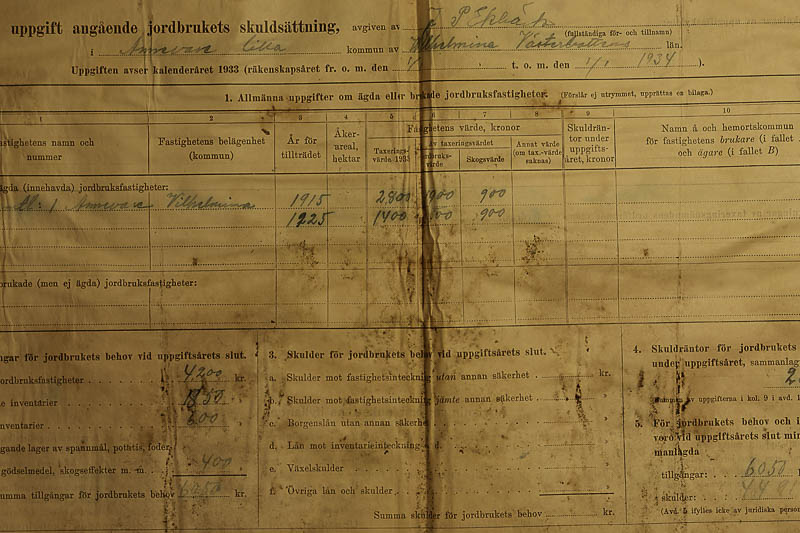 uppgift angående jordbrukets skuldsättning, avgiven av J P Eklåh
(fullständiga för- och tillnamn)
i Annevare Lilla kommun av Wilhelmina Västerbottens län.
Uppgiften avser kalenderåret 1933 (räkenskapsåret fr. o. m. den 1/1 t. o. m. den 1/1 1934).
1. Allmänna uppgifter om ägda eller brukade jordbruksfastigheter. (Förslår ej utrymmet, upprättas en bilaga.)
1 2 3 4 5 6 7 8 9 10
astighetens namn och nummer
Fastighetens belägenhet (kommun)
År för tillträdet
Åker-areal, hektar
Fastighetens värde, kronor
Taxerings-värde 1933
Av taxeringsvärdet
Jordbruks-värde
Skogsvärde
Annat värde (om tax.-värde saknas)
Skuldrän-tor under uppgifts-året, kronor
Namn å och hemortskommun för fastighetens brukare (i fallet och ägare (i fallet B)
ägda (innehavda) jordbruksfastigheter:
1 Annevare Vilhelmina 1915 2800 1900 900
1225 1400 500 900
brukade (men ej ägda) jordbruksfastigheter:
ngar för jordbrukets behov vid uppgiftsårets slut.
jordbruksfastigheter 4,200 kr.
e inventarier 1850 »
nventarier 600 »
gande lager av spannmål, potatis, foder,
gödselmedel, skogseffekter m. m. 400 »
umma tillgångar för jordbrukets behov 6050 kr.
3. Skulder för jordbrukets behov vid uppgiftsårets slut.
a. Skulder mot fastighetsinteckning utan annan säkerhet kr.
b. Skulder mot fastighetsinteckning jämte annan säkerhet »
c. Borgenslån utan annan säkerhet »
d. Lån mot inventarieinteckning »
e. Växelskulder »
f. Övriga lån och skulder »
Summa skulder för jordbrukets behov kr.
4. Skuldräntor för jordbrukets
under uppgiftsåret, sammanlag
2
Summan av uppgifterna i kol. 9 i avd. 1
5. För jordbrukets behov och i
verö vid uppgiftsårets slut min
manlagda
tillgångar: 6050
skulder:
(Avd. 5 ifylles icke av juridiska perso